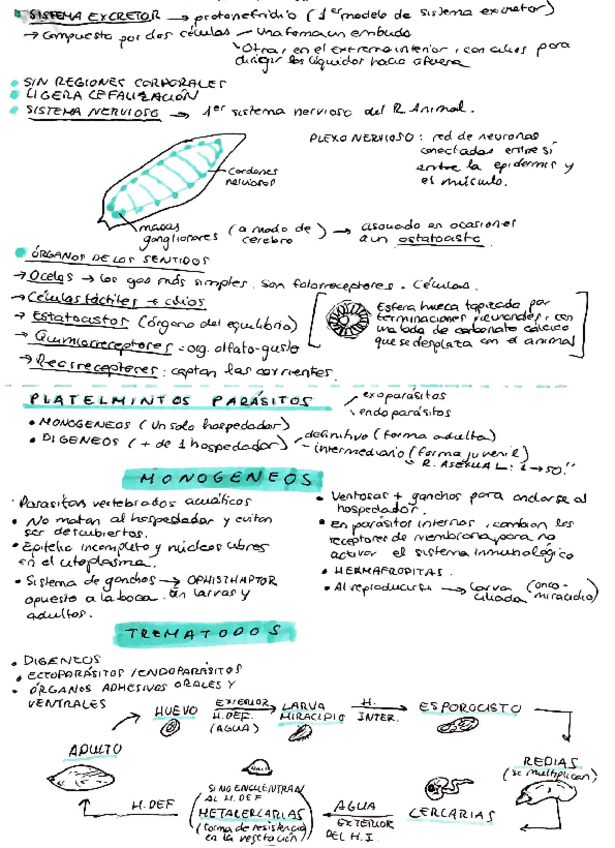 SISTEMA EXCRETOR → protonefridio (1er modelo de sistema excretor)
→ Compuesto por dos células - Una forma un embudo
Otras, en el extremo interior, con cilios para
dirigir los líquidos hacia afuera
SIN REGIONES CORPORALES
LIGERA CEFALIZACIÓN
SISTEMA NERVIOSO → 1er sistema nervioso del R. Animal.
PLEXO NERVIOSO: red de neuronas
conectadas entre sí
entre la epidermis y
el músculo.
Cordones
nerviosos
masas
ganglionares (a modo de cerebro) → asociado en ocasiones
a un estatocisto.
ÓRGANOS DE LOS SENTIDOS
→ Ocelos → los más simples. Son fotorreceptores. Células.
→ Células táctiles + cilios
→ Estatocistos (órgano del equilibrio)
→ Quimiorreceptores = org. olfato-gusto
→ Reorreceptores: captan las corrientes.
Esfera hueca tapizada por
terminaciones, con
una bola de carbonato cálcico
que se desplaza con el animal
PLATELMINTOS PARÁSITOS
exoparásitos
endoparásitos
• MONOGENEOS (Un solo hospedador)
• DIGENEOS (+ de 1 hospedador)
definitivo (forma adulta)
intermediario (forma juvenil)
R. ASEXUAL: 1 → 50."
MONOGENEOS
• Parasitan vertebrados acuáticos
• No matan al hospedador y evitan
ser descubiertos.
• Epitelio incompleto y núcleos libres
en el citoplasma.
• Sistema de ganchos → OPHISTHAPTOR
opuesto a la boca. En larvas y
adultos.
• Ventosas + ganchos para anclarse al
hospedador.
• En parásitos internos, cambian los
receptores de membrana para no
activar el sistema inmunológico
• HERMAFRODITAS.
• Al reproducirse → larva ciliada (oncomiracidio)
TREMATODOS
• DIGENEOS
• ECTOPARÁSITOS / ENDOPARÁSITOS
• ÓRGANOS ADHESIVOS ORALES Y
VENTRALES
HUEVO
EXTERIOR
H. DEF.
(AGUA)
LARVA
MIRACIDIO
H.
INTER.
ESPOROCISTO
REDIAS
(se multiplican)
CERCARIAS
AGUA
EXTERIOR
DEL H.I.
SI NO ENCUENTRAN
AL H. DEF
METACERCARIAS
(forma de resistencia
en la vegetación)
H. DEF
ADULTO